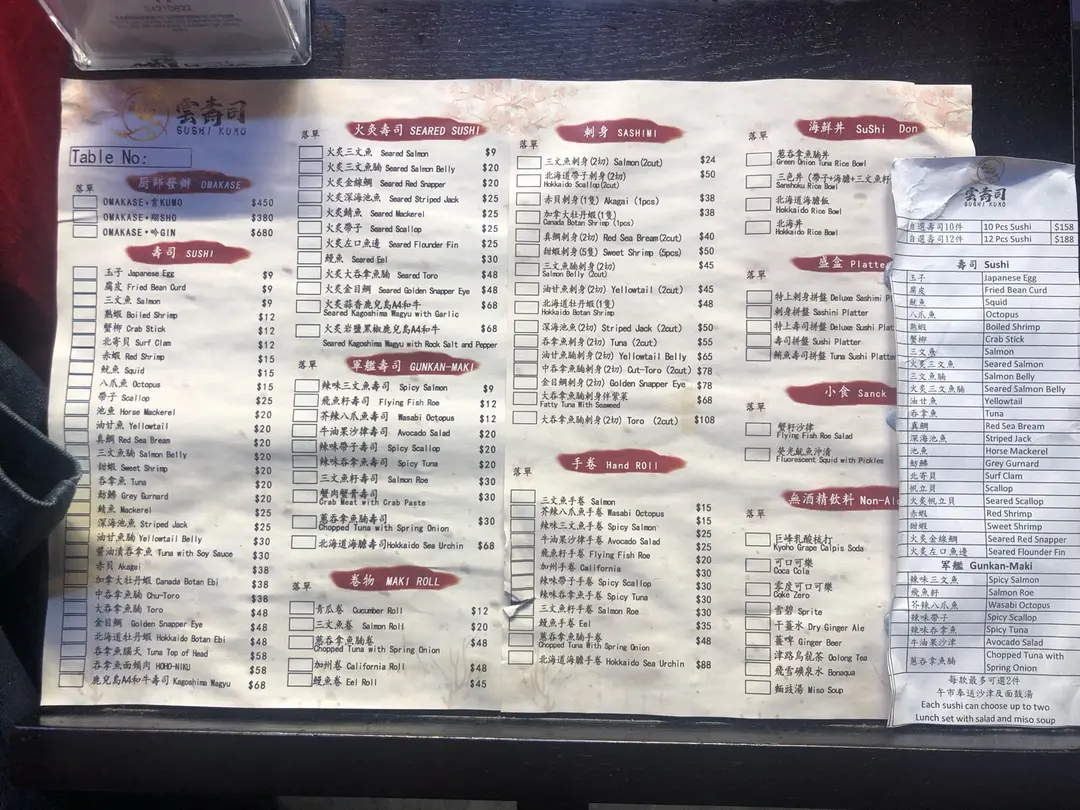 SA210822
雲壽司
SUSHI KUMO
Table No:
落單
厨師發辦 OMAKASE
OMAKASE·雲KUMO $450
OMAKASE·翔SHO $380
OMAKASE·吟GIN $680
壽司 SUSHI
玉子 Japanese Egg $9
腐皮 Fried Bean Curd $9
三文魚 Salmon $9
熟蝦 Boiled Shrimp $12
蟹柳 Crab Stick $12
北寄貝 Surf Clam $12
赤蝦 Red Shrimp $15
魷魚 Squid $15
八爪魚 Octopus $15
帶子 Scallop $25
池魚 Horse Mackerel $20
油甘魚 Yellowtail $20
真鯛 Red Sea Bream $20
三文魚腩 Salmon Belly $20
甜蝦 Sweet Shrimp $20
吞拿魚 Tuna $20
魴鮄 Grey Gurnard $20
鯖魚 Mackerel $25
深海池魚 Striped Jack $25
油甘魚腩 Yellowtail Belly $30
醬油漬吞拿魚 Tuna with Soy Sauce $30
赤貝 Akagai $38
加拿大牡丹蝦 Canada Botan Ebi $38
中吞拿魚腩 Chu-Toro $38
大吞拿魚腩 Toro $48
金目鯛 Golden Snapper Eye $48
北海道牡丹蝦 Hokkaido Botan Ebi $48
吞拿魚腦天 Tuna Top of Head $58
吞拿魚面頰肉 HOHO-NIKU $58
鹿兒島A4和牛壽司 Kagoshima Wagyu $68
落單
火炙壽司 SEARED SUSHI
火炙三文魚 Seared Salmon $9
火炙三文魚腩 Seared Salmon Belly $20
火炙金線鯛 Seared Red Snapper $20
火炙深海池魚 Seared Striped Jack $25
火炙鯖魚 Seared Mackerel $25
火炙帶子 Seared Scallop $25
火炙左口魚邊 Seared Flounder Fin $25
鰻魚 Seared Eel $30
火炙大吞拿魚腩 Seared Toro $48
火炙金目鯛 Seared Golden Snapper Eye $48
火炙蒜香鹿兒島A4和牛 $68
Seared Kagoshima Wagyu with Garlic
火炙岩鹽黑椒鹿兒島A4和牛 $68
Seared Kagoshima Wagyu with Rock Salt and Pepper
落單
軍艦壽司 GUNKAN-MAKI
辣味三文魚壽司 Spicy Salmon $9
飛魚籽壽司 Flying Fish Roe $12
芥辣八爪魚壽司 Wasabi Octopus $12
牛油果沙律壽司 Avocado Salad $20
辣味帶子壽司 Spicy Scallop $20
辣味吞拿魚壽司 Spicy Tuna $20
三文魚籽壽司 Salmon Roe $30
蟹肉蟹膏壽司 $30
Crab Meat with Crab Paste
蔥吞拿魚腩壽司 $30
Chopped Tuna with Spring Onion
北海道海膽壽司Hokkaido Sea Urchin $68
落單
卷物 MAKI ROLL
青瓜卷 Cucumber Roll $12
三文魚卷 Salmon Roll $20
蔥吞拿魚腩卷 $48
Chopped Tuna with Spring Onion
加州卷 California Roll $48
鰻魚卷 Eel Roll $45
落單
刺身 SASHIMI
三文魚刺身(2切) Salmon(2cut) $24
北海道帶子刺身(2切) $50
Hokkaido Scallop(2cut)
赤貝刺身(1隻) Akagai (1pcs) $38
加拿大牡丹蝦(1隻) $38
Canada Botan Shrimp (1pcs)
真鯛刺身(2切) Red Sea Bream(2cut) $40
甜蝦刺身(5隻) Sweet Shrimp (5pcs) $50
三文魚腩刺身(2切) $45
Salmon Belly (2cut)
油甘魚刺身(2切) Yellowtail (2cut) $45
北海道牡丹蝦(1隻) $48
Hokkaido Botan Shrimp
深海池魚(2切) Striped Jack (2cut) $50
吞拿魚刺身(2切) Tuna (2cut) $55
油甘魚腩刺身(2切) Yellowtail Belly $65
中吞拿魚腩刺身(2切) Cut-Toro (2cut) $78
金目鯛刺身(2切) Golden Snapper Eye $78
大吞拿魚腩刺身伴紫菜 $68
Fatty Tuna With Seaweed
大吞拿魚腩刺身(2切) Toro (2cut) $108
落單
手卷 Hand ROLL
三文魚手卷 Salmon $15
芥辣八爪魚手卷 Wasabi Octopus $15
辣味三文魚手卷 Spicy Salmon $20
牛油果沙律手卷 Avocado Salad $25
飛魚籽手卷 Flying Fish Roe $25
加州手卷 California $20
辣味帶子手卷 Spicy Scallop $30
辣味吞拿魚手卷 Spicy Tuna $30
三文魚籽手卷 Salmon Roe $30
鰻魚手卷 Eel $35
蔥吞拿魚腩手卷 $48
Chopped Tuna With Spring Onion
北海道海膽手卷 Hokkaido Sea Urchin $88
落單
海鮮丼 SuShi Don
蔥吞拿魚腩丼
Green Onion Tuna Rice Bowl
三色丼 (帶子+海膽+三文魚籽
Sanshoku Rice Bowl
北海道海膽飯
Hokkaido Rice Bowl
北海丼
Hokkaido Rice Bowl
落單
盛盒 Platter
特上刺身拼盤 Deluxe Sashimi Pl
刺身拼盤 Sashini Platter
特上壽司拼盤 Deluxe Sushi Plat
壽司拼盤 Sushi Platter
鮪魚壽司拼盤 Tuna Sushi Platter
落單
小食 Sanck
蟹籽沙律
Flying Fish Roe Salad
熒光魷魚沖漬
Fluorescent Squid with Pickles
落單
無酒精飲料 Non-Al
巨峰乳酸梳打
Kyoho Grape Calpis Soda
可口可樂
Coca Cola
零度可口可樂
Coke Zero
雪碧 Sprite
干薑水 Dry Ginger Ale
薑啤 Ginger Beer
津路烏龍茶 Oolong Tea
飛雪礦泉水 Bonaqua
麵豉湯 Miso Soup
雲壽司
SUSHI KUMO
自選壽司10件 10 Pcs Sushi $158
自選壽司12件 12 Pcs Sushi $188
壽司 Sushi
玉子 Japanese Egg
腐皮 Fried Bean Curd
魷魚 Squid
八爪魚 Octopus
熟蝦 Boiled Shrimp
蟹柳 Crab Stick
三文魚 Salmon
火炙三文魚 Seared Salmon
三文魚腩 Salmon Belly
火炙三文魚腩 Seared Salmon Belly
油甘魚 Yellowtail
吞拿魚 Tuna
真鯛 Red Sea Bream
深海池魚 Striped Jack
池魚 Horse Mackerel
魴鮄 Grey Gurnard
北寄貝 Surf Clam
帆立貝 Scallop
火炙帆立貝 Seared Scallop
赤蝦 Red Shrimp
甜蝦 Sweet Shrimp
火炙金線鯛 Seared Red Snapper
火炙左口魚邊 Seared Flounder Fin
軍艦 Gunkan-Maki
辣味三文魚 Spicy Salmon
飛魚籽 Salmon Roe
芥辣八爪魚 Wasabi Octopus
辣味帶子 Spicy Scallop
辣味吞拿魚 Spicy Tuna
牛油果沙津 Avocado Salad
蔥吞拿魚腩 Chopped Tuna with
Spring Onion
每款最多可選2件
午市奉送沙津及麵豉湯
Each sushi can choose up to two
Lunch set with salad and miso soup